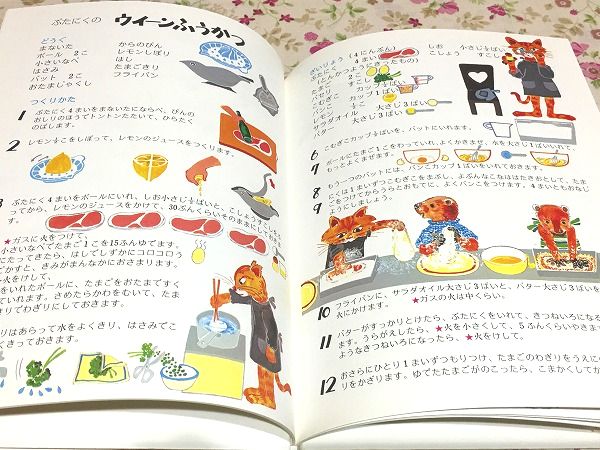 ぶたにくの ウィーンふうかつ
どうぐ
まないた
ボール 2こ
小さいなべ
はさみ
バット 2こ
おたまじゃくし
からのびん
レモンしぼり
はし
たまごきり
フライパン
つくりかた
1 ぶたにく4まいをまないたにならべ、びんの
おしりのほうでトントンたたいて、ひらたく
のばします。
2 レモン½こをしぼって、レモンのジュースをつくります。
3 ぶたにく4まいをボールにいれ、しお小さじ½ぱいと、こしょうすこ
ってから、レモンのジュースをかけて、30ぷんくらいそのままにして
★ガスに火をつけて、
小さいなべでたまご1こを15ふんゆでます。
にたってきたら、はしでしずかにコロコロう
ごかすと、きみがまんなかにおさまります。
火をけして、
をいれたボールに、たまごをおたまですく
ていれます。さめたらかわをむいて、たま
きりでわぎりにしておきます。
りはあらって水をよくきり、はさみでこ
くきっておきます。
ざいりょう(4にんぶん)
ぶたにく 4まい
(とんかつようにきったもの)
たまご
パンこ カップ
こむぎこ カップ
レモン
サラダオイル 大さじ3ばい
バター 大さじ3ばい
しお 小さじ½ぱい
こしょう すこし
6 こむぎこカップ½ぱいを、バットにいれます。
7 ボールにたまご2こをわっていれ、よくかきまぜ、水を大さじ1ぱいいれて、
もっとよくまぜます。
8 もう一つのバットには、パンこカップ1ぱいをいれます。
9 ぶたにくは1まいずつこむぎこをまぶし、よぶんなこなははたきおとして、たま
ごをつけてからうらとおもてに、よくパンこをつけます。4まいともおなじ
ようにしましょう。
10 フライパンに、サラダオイル大さじ3ばいと、バター大さじ3ばいを
火にかけます。 ★ガスの火は中くらい。
11 バターがすっかりとけたら、ぶたにくをいれて、きつねいろになる
ます。うらがえしたら、★火を小さくして、5ふんくらいやきま
ようなきつねいろになったら、★火をけして。
12 おさらにひとり1まいずつもりつけ、たまごのわぎりをうえに
りをかざります。ゆでたたまごがのこったら、こまかくして